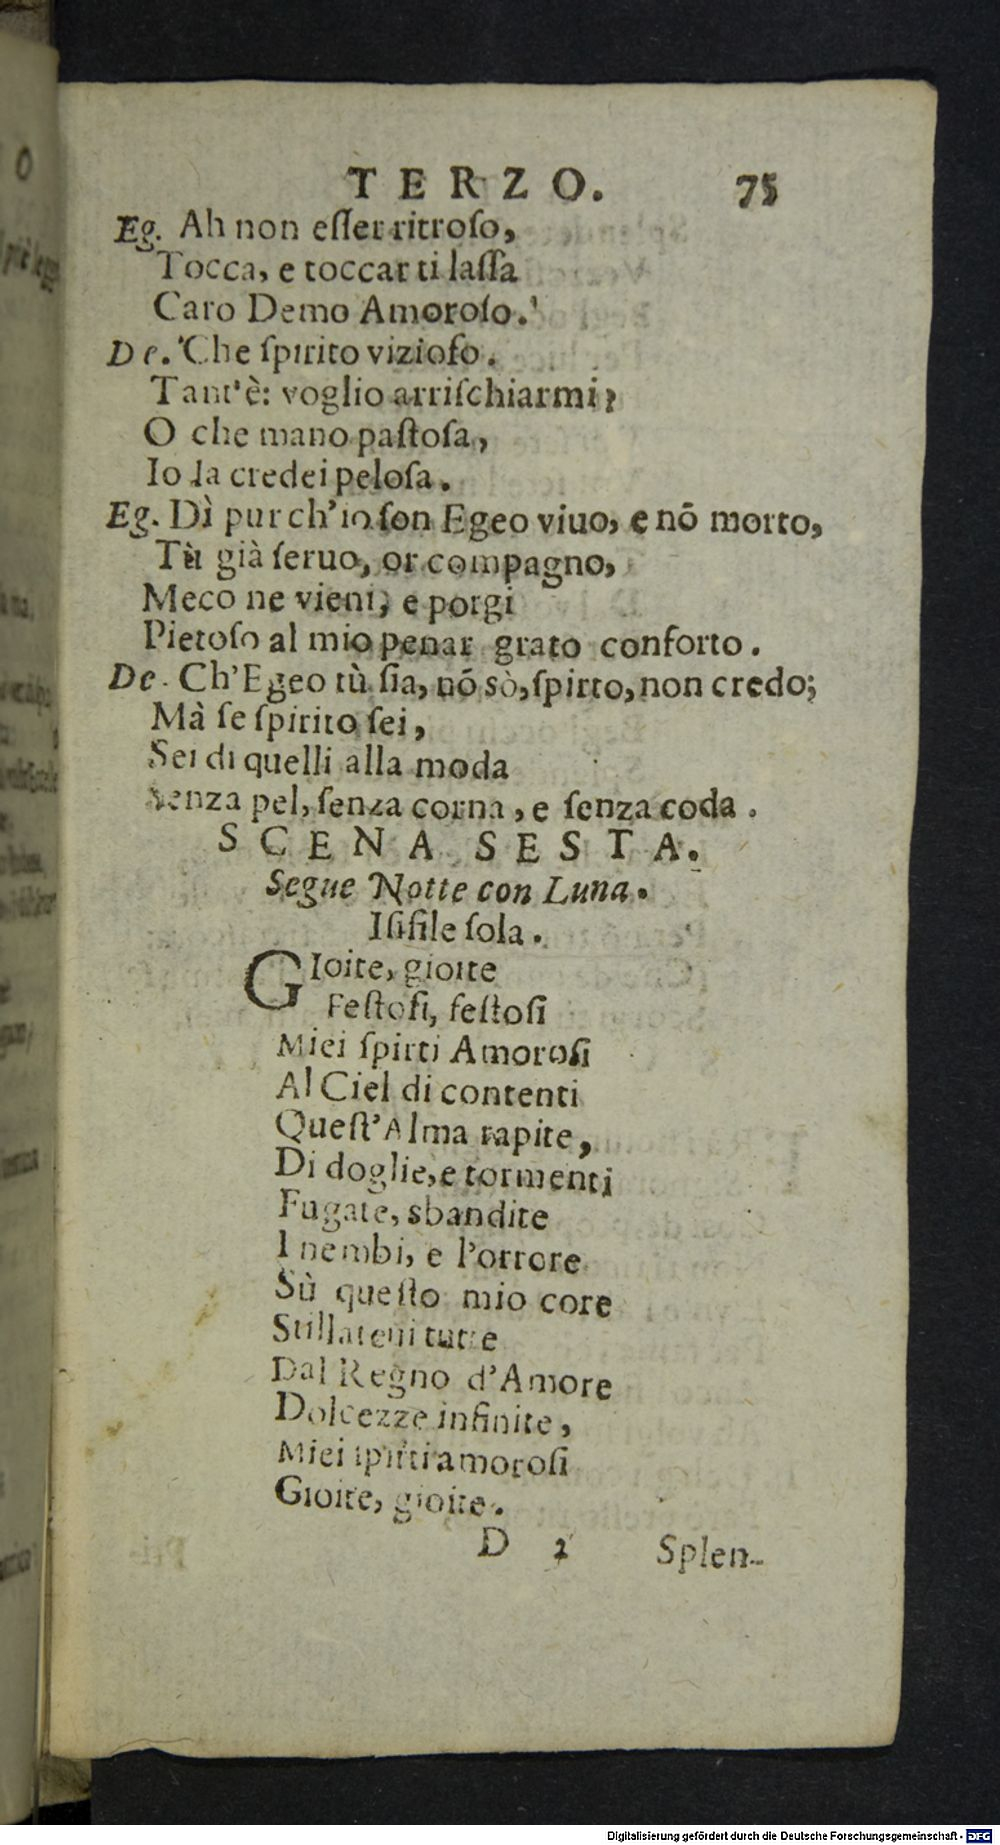 TERZO. 75
Eg. Ah non eſſer ritroſo,
Tocca, e toccar ti laſſa
Caro Demo Amoroſo.
De. Che ſpirito vizioſo.
Tant'è: voglio arriſchiarmi;
O che mano paſtoſa,
Io la credei peloſa.
Eg. Dì pur ch'io ſon Egeo viuo, e nõ morto,
Tù già ſeruo, or compagno,
Meco ne vieni, e porgi
Pietoſo al mio penar grato conforto.
De. Ch'Egeo tù ſia, nõ sò, ſpirto, non credo;
Mà ſe ſpirito ſei,
Sei di quelli alla moda
Senza pel, ſenza corna, e ſenza coda.
SCENA SESTA.
Segue Notte con Luna.
Iſifile ſola.
GIoite, gioite
Feſtoſi, feſtoſi
Miei ſpirti Amoroſi
Al Ciel di contenti
Queſt'Alma rapite,
Di doglie, e tormenti
Fugate, sbandite
I nembi, e l'orrore
Sù queſto mio core
Stillateui tutte
Dal Regno d'Amore
Dolcezze infinite,
Miei ſpirti amoroſi
Gioite, gioite.
D 2 Splen-
Digitalisierung gefördert durch die Deutsche Forschungsgemeinschaft - DFG